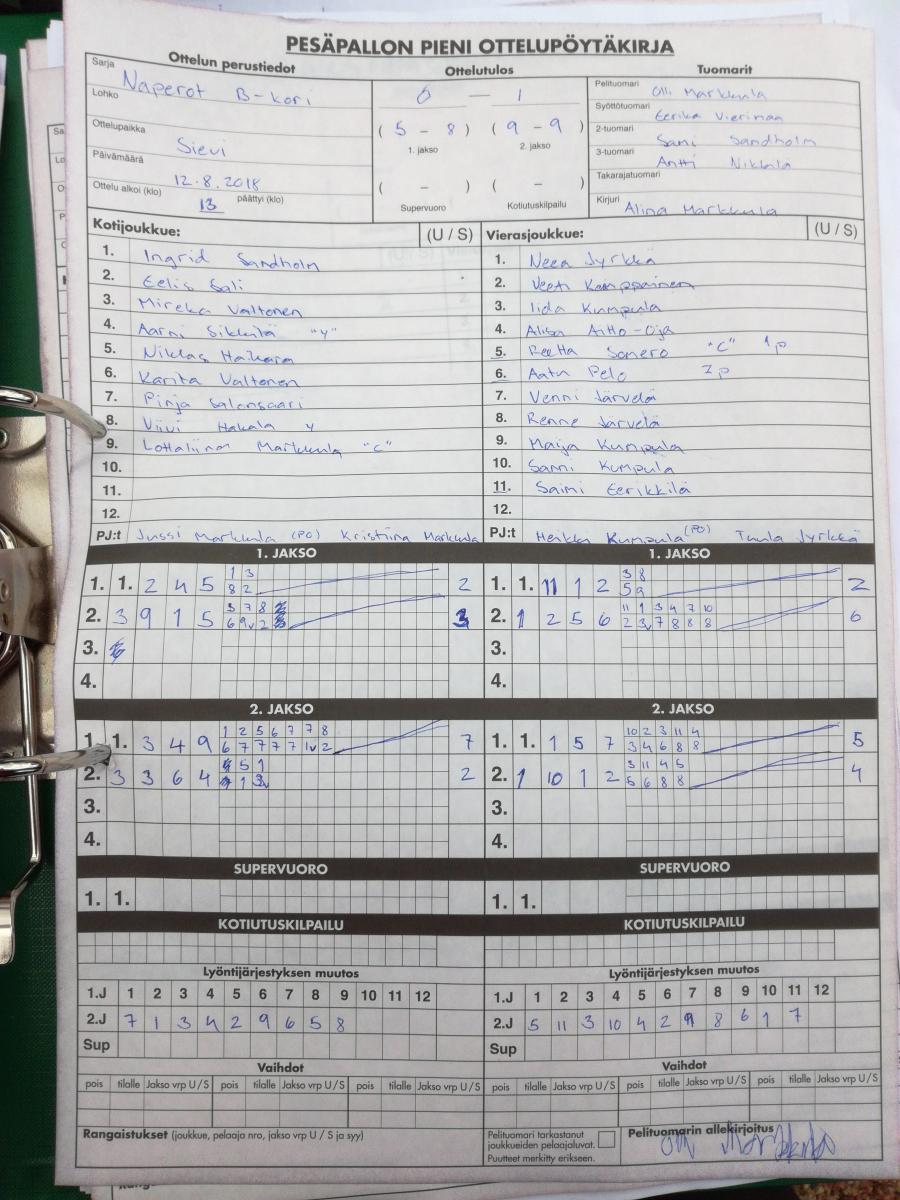 PESÄPALLON PIENI OTTELUPÖYTÄKIRJA
Ottelun perustiedot
Sarja Naperot B-kori
Lohko
Ottelupaikka Sievi
Päivämäärä 12.8.2018
Ottelu alkoi (klo) 13 päättyi (klo)
Ottelutulos
0 — 1
( 5 - 8 ) ( 9 - 9 )
1. jakso 2. jakso
( - ) ( - )
Supervuoro Kotiutuskilpailu
Tuomarit
Pelituomari Olli Markkula
Syöttötuomari Eerika Vierimaa
2-tuomari Sami Sandholm
3-tuomari Antti Nikkilä
Takarajatuomari
Kirjuri Alina Markkula
Kotijoukkue: (U / S)
1. Ingrid Sandholm
2. Eelis Sali
3. Mireka Valtonen
4. Aarni Sikkilä "Y"
5. Niklas Haikara
6. Karita Valtonen
7. Pinja Salonsaari
8. Viivi Hakala Y
9. Lottaliina Markkula "C"
10.
11.
12.
PJ:t Jussi Markkula (PO) Kristiina Markkula
Vierasjoukkue: (U / S)
1. Neea Jyrkkä
2. Veeti Kemppainen
3. Iida Kumpula
4. Alisa Aitto-Oja
5. Reetta Somero "C" 1p
6. Aatu Pelo 2p
7. Venni Järvelä
8. Renne Järvelä
9. Maija Kumpula
10. Sanni Kumpula
11. Saimi Eerikkilä
12.
PJ:t Heikki Kumpula (PO) Tuula Jyrkkä
1. JAKSO
1. 1. 2 4 5 1 3 2
8 2
2. 3 9 1 5 3 7 8 3
6 9v 2
3.
4.
1. JAKSO
1. 1. 11 1 2 3 8 2
5 9
2. 1 2 5 6 11 1 3 4 7 10 6
2 3v 7 8 8 8
3.
4.
2. JAKSO
1. 1. 3 4 9 1 2 5 6 7 7 8 7
6 7 7 7 7 1v 2
2. 3 3 6 4 5 1 2
1 3v
3.
4.
2. JAKSO
1. 1. 1 5 7 10 2 3 11 4 5
3 4 6 8 8
2. 1 10 1 2 3 11 4 5 4
5 6 8 8
3.
4.
SUPERVUORO
1. 1.
SUPERVUORO
1. 1.
KOTIUTUSKILPAILU
KOTIUTUSKILPAILU
Lyöntijärjestyksen muutos
1.J 1 2 3 4 5 6 7 8 9 10 11 12
2.J 7 1 3 4 2 9 6 5 8
Sup
Lyöntijärjestyksen muutos
1.J 1 2 3 4 5 6 7 8 9 10 11 12
2.J 5 11 3 10 4 2 9 8 6 1 7
Sup
Vaihdot
pois tilalle Jakso vrp U / S pois tilalle Jakso vrp U / S pois tilalle Jakso vrp U / S
Vaihdot
pois tilalle Jakso vrp U / S pois tilalle Jakso vrp U / S pois tilalle Jakso vrp U / S
Rangaistukset (joukkue, pelaaja nro, jakso vrp U / S ja syy)
Pelituomari tarkastanut
joukkueiden pelaajaluvat.
Puutteet merkitty erikseen.
Pelituomarin allekirjoitus
Olli Markkula